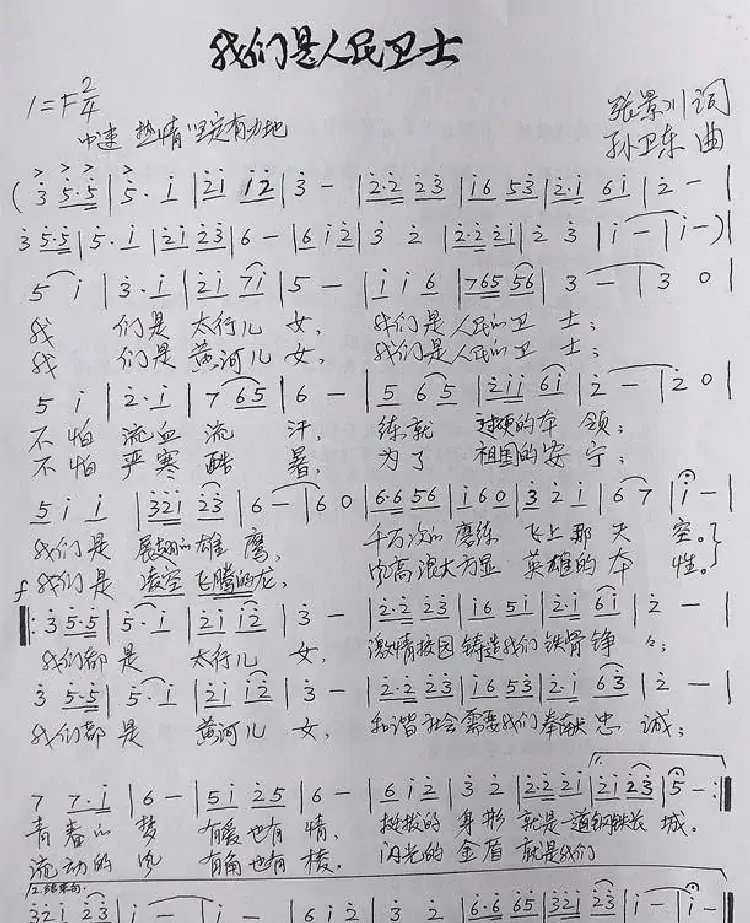 我们是人民卫士
1=F 2/4
中速 热情 坚定有力地
张景川 词
孙卫东 曲
(3 5·5 | 5· i | 2i i2 | 3 - | 2·2 23 | i6 53 | 2·i 6i | 2 - |
3 5·5 | 5· i | 2i 23 | 6 - | 6 i2 | 3 2 | 2·2 2i | 2 3 | i - | i -) |
5 i | 3· i | 2i 7i | 5 - | i i 6 | 765 56 | 3 - | 3 0 |
我 们是 太行儿 女, 我们是人民的卫 士;
我 们是 黄河儿 女, 我们是人民的卫 士;
5 i | 2· i | 7 65 | 6 - | 5 6 5 | 2ii 6i | 2 - | 2 0 |
不 怕 流血 流 汗, 练就 过硬的本 领;
不 怕 严寒 酷 暑, 为了 祖国的安 宁;
5 i i | 32i 23 | 6 - | 6 0 | 6·6 56 | i 6 0 | 3 2 i | 6 7 | i - |
我们是 展翅的雄 鹰, 千万次的 磨练 飞上那 天 空。}
f 我们是 凌空飞腾的龙, 浪大方显 英雄的 本 性。}
‖: 3 5·5 | 5· i | 2i i2 | 3 - | 2·2 23 | i6 5i | 2·i 6i | 2 - |
我们都 是 太行儿 女, 激情校园 铸造我们 铁骨铮 々;
3 5·5 | 5· i | 2i i2 | 3 - | 2·2 23 | i6 53 | 2·i 63 | 2 - |
我们都 是 黄河儿 女, 和谐社会 需要我们 奉献忠 诚;
7 7·i | 6 - | 5i 25 | 6 - | 6 i 2 | 3 2 | 2·2 2i | 2i 23 | 5 - :‖
青春的 梦 有爱也有 情, 挺拔的 身影 就是一道钢铁长 城。
流动的 风 有角也有 棱, 闪光的 金盾 就是我们
32i 23 | i - | i - | 6 i2 | 3 2 | 6·6 65 | 32i 23 | i - | i -